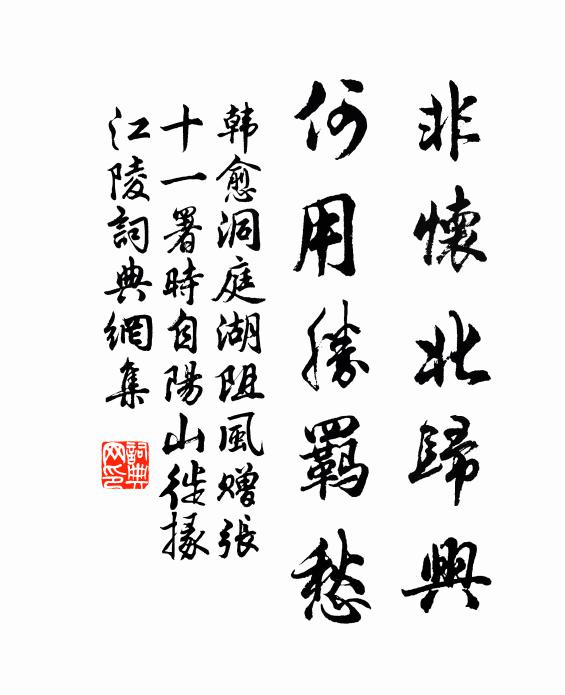 非懷北歸興
何用勝羈愁
韩愈洞庭湖阻風赠張
十一署時自陽山徙掾
江陵詞典網集
詞典
网印